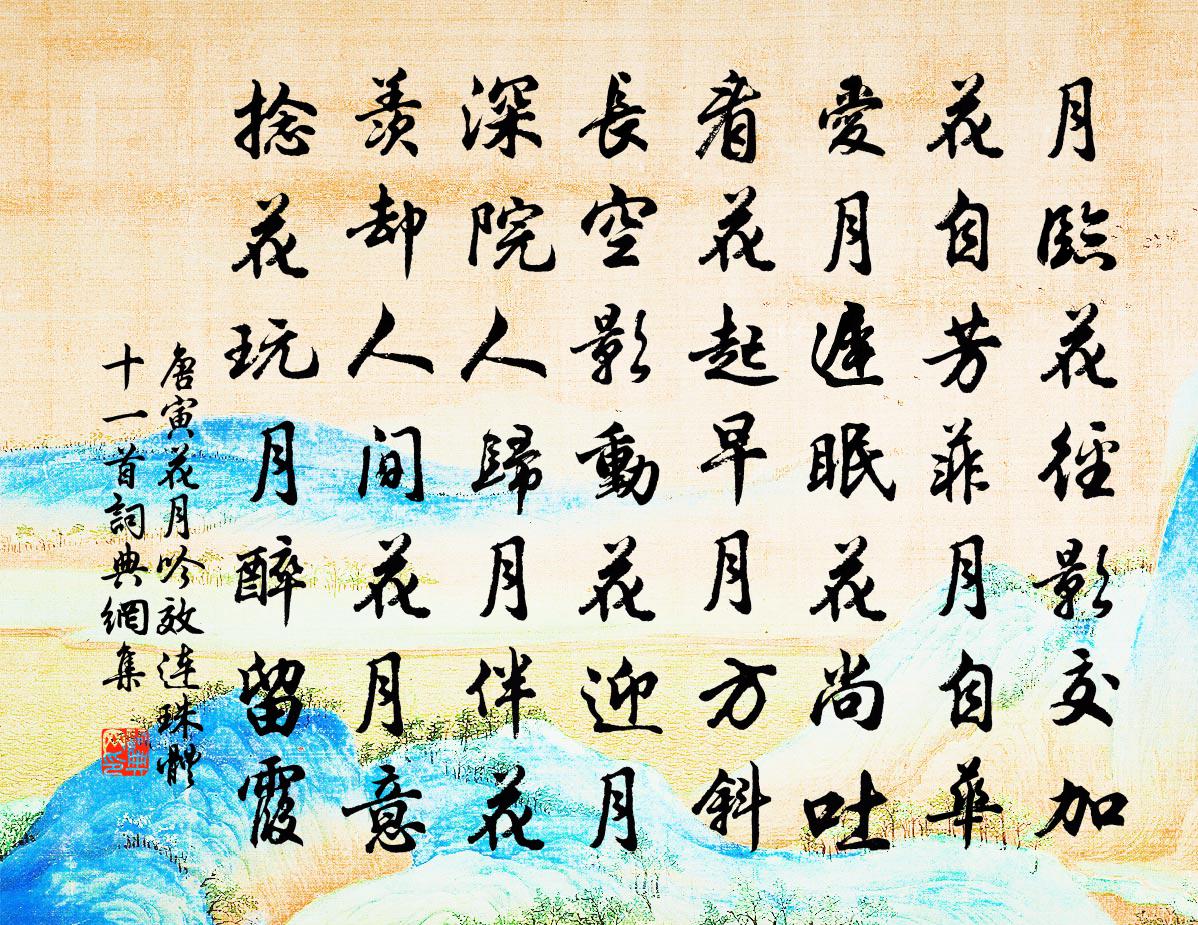 月臨花徑影交加
花自芳菲月自華
愛月遲眠花尚吐
看花起早月方斜
長空影動花迎月
深院人歸月伴花
羨却人間花月意
捻花玩月醉留霞
唐寅花月吟效連珠體
十一首詞典網集